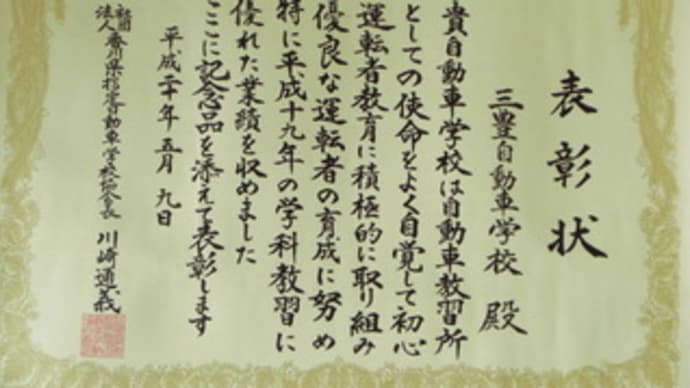 表彰状
三豊自動車学校 殿
貴自動車学校は自動車教習所
としての使命をよく自覚して初心
運転者教育に積極的に取り組み
優良な運転者の育成に努め
特に平成十九年の学科教習に
優れた業績を収めました
ここに記念品を添えて表彰します
平成二十年五月九日
社団法人 香川県指定自動車学校協会会長 川崎通義